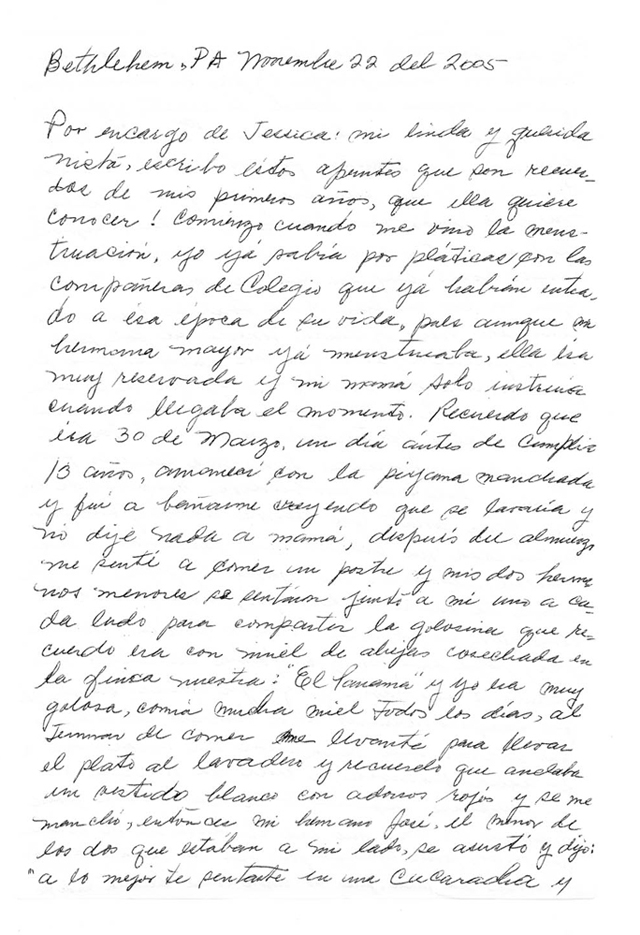 Bethlehem, PA Noviembre 22 del 2005
Por encargo de Jessica: mi linda y querida
nieta, escribo estos apuntes que son recuer-
dos de mis primeros años, que ella quiere
conocer! Comienzo cuando me vino la mens-
truación, yo yá sabía por pláticas con las
compañeras de Colegio que yá habían entra-
do a esa época de su vida, pues aunque mi
hermana mayor yá menstruaba, ella era
muy reservada y mi mamá solo instruía
cuando llegaba el momento. Recuerdo que
era 30 de Marzo, un día antes de cumplir
13 años, amanecí con la piyama manchada
y fuí a bañarme creyendo que se lavaría y
no dije nada a mamá, después del almuerzo
me senté a comer un postre y mis dos herma
nos menores se sentaron junto a mi uno a ca-
da lado para compartir la golosina que re-
cuerdo era con miel de abejas cosechada en
la finca nuestra: "El Panamá" y yo era muy
golosa, comía mucha miel todos los días, al
terminar de comer me levanté para llevar
el plato al lavadero y recuerdo que andaba
un vestido blanco con adornos rojos y se me
manchó, entonces mi hermano José, el menor de
los dos que estaban a mi lado, se asustó y dijo:
"a lo mejor te sentaste en una cucaracha y